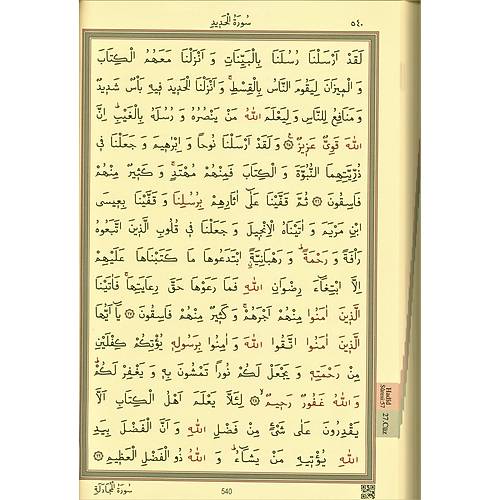 سُورَةُ الْحَدِيدِ ٥٤٠
لَقَدْ اَرْسَلْنَا رُسُلَنَا بِالْبَيِّنَاتِ وَ اَنْزَلْنَا مَعَهُمُ الْكِتَابَ
وَ الْمِيزَانَ لِيَقُومَ النَّاسُ بِالْقِسْطِۚ وَ اَنْزَلْنَا الْحَدِيدَ فِيهِ بَاْسٌ شَدِيدٌ
وَ مَنَافِعُ لِلنَّاسِ وَ لِيَعْلَمَ اللّٰهُ مَنْ يَنْصُرُهُ وَ رُسُلَهُ بِالْغَيْبِۜ اِنَّ
اللّٰهَ قَوِىٌّ عَزِيزٌ ﴿٢٥﴾ وَ لَقَدْ اَرْسَلْنَا نُوحًا وَ اِبْرٰهِيمَ وَ جَعَلْنَا فِى
ذُرِّيَّتِهِمَا النُّبُوَّةَ وَ الْكِتَابَ فَمِنْهُمْ مُهْتَدٍۚ وَ كَثِيرٌ مِنْهُمْ
فَاسِقُونَ ﴿٢٦﴾ ثُمَّ قَفَّيْنَا عَلٰٓى اٰثَارِهِمْ بِرُسُلِنَا وَ قَفَّيْنَا بِعِيسَى
ابْنِ مَرْيَمَ وَ اٰتَيْنَاهُ الْاِنْجِيلَ وَ جَعَلْنَا فِى قُلُوبِ الَّذِينَ اتَّبَعُوهُ
رَاْفَةً وَ رَحْمَةًۜ وَ رَهْبَانِيَّةًۨ ابْتَدَعُوهَا مَا كَتَبْنَاهَا عَلَيْهِمْ
اِلَّا ابْتِغَٓاءَ رِضْوَانِ اللّٰهِ فَمَا رَعَوْهَا حَقَّ رِعَايَتِهَاۚ فَاٰتَيْنَا
الَّذِينَ اٰمَنُوا مِنْهُمْ اَجْرَهُمْۚ وَ كَثِيرٌ مِنْهُمْ فَاسِقُونَ ﴿٢٧﴾ يَٓا اَيُّهَا
الَّذِينَ اٰمَنُوا اتَّقُوا اللّٰهَ وَ اٰمِنُوا بِرَسُولِهِ يُؤْتِكُمْ كِفْلَيْنِ
مِنْ رَحْمَتِهِ وَ يَجْعَلْ لَكُمْ نُورًا تَمْشُونَ بِهِ وَ يَغْفِرْ لَكُمْۜ
وَ اللّٰهُ غَفُورٌ رَحِيمٌۙ ﴿٢٨﴾ لِئَلَّا يَعْلَمَ اَهْلُ الْكِتَابِ اَلَّا
يَقْدِرُونَ عَلٰى شَىْءٍ مِنْ فَضْلِ اللّٰهِ وَ اَنَّ الْفَضْلَ بِيَدِ
اللّٰهِ يُؤْتِيهِ مَنْ يَشَٓاءُۜ وَ اللّٰهُ ذُو الْفَضْلِ الْعَظِيمِ ﴿٢٩﴾
Hadîd
Sûresi:57
27.Cüz
سُورَةُ الْمُجَادَلَةِ 540